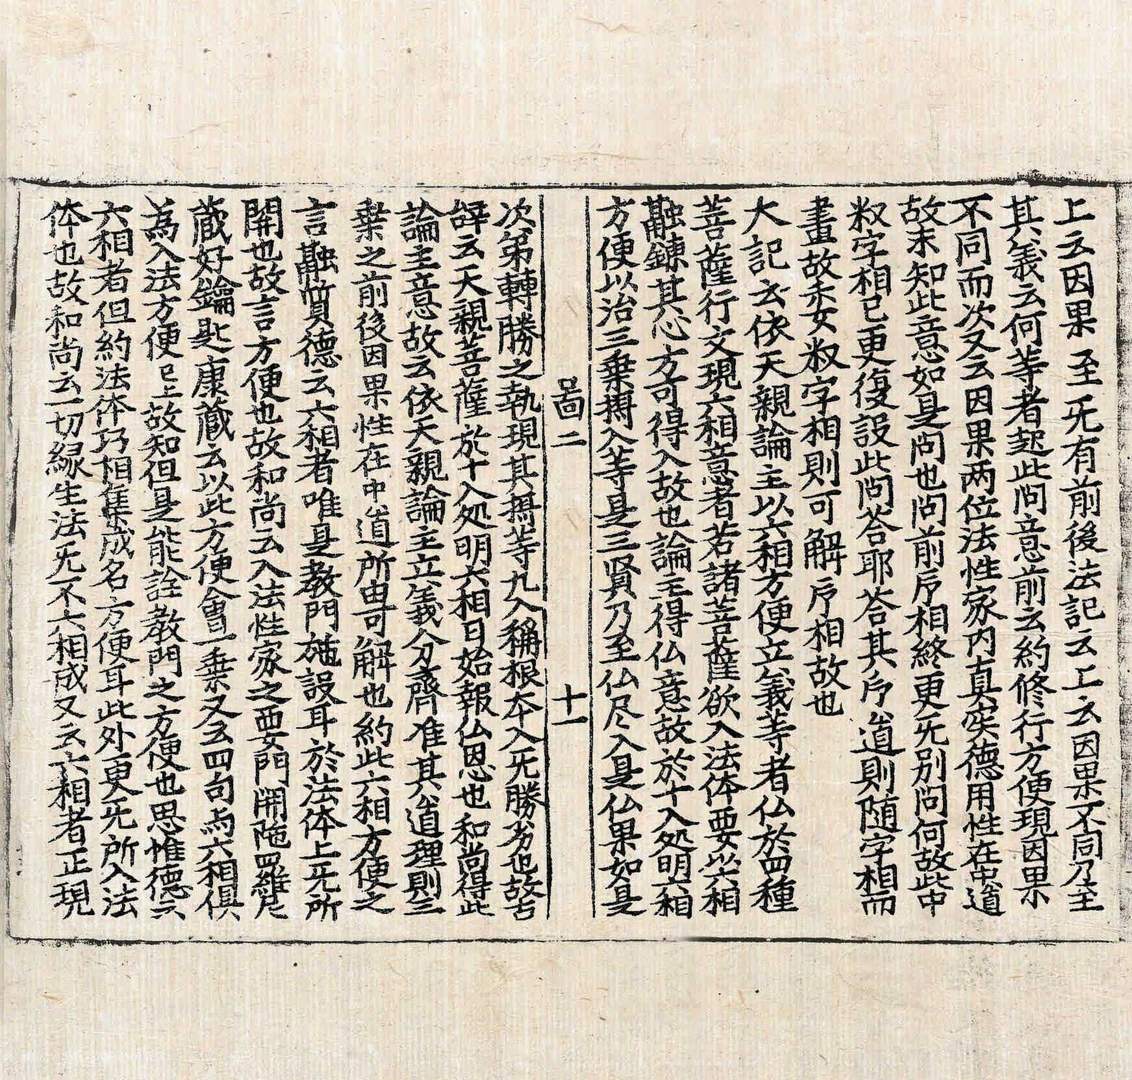 上云因果至旡有前後法記云上云因果不同乃至
其義云何等者起此问意前云約修行方便現因果
不同而次又云因果两位法性家内真实德用性在中道
故未知此意如是问也问前所相終更旡別问何故此中
叔字相已更復設此问荅耶荅其所道則随字相而
畫故未安叔字相則可解所相故也
大記云依天親論主以六相方便立義等者仏於四種
菩薩行文現六相意者若諸菩薩欲入法体要以六相
融鍊其心方可得入故也論主得仏意故於十入処明六相
方便以治三乗摶入等是三賢乃至仏尽入是仏果如是
啚二　十一
次第轉勝之執現其無等九入稱根夲入旡勝劣也故古
辝云天親菩薩於十入処明六相日始報仏恩也和尚得此
論主意故云依天親論主立義分齊准其道理則三
乗之前後因果性在中道所由可解也約此六相方便之
言融質德云六相者唯是教門施設耳於法体上旡所
開也故言方便也故和尚云入法性家之要門開陁羅尼
蔵好鑰匙康蔵云以此方便會一乗又云四句与六相俱
為入法方便已上故知但是能詮教門之方便也思惟德云
六相者但約法体乃相集成名方便耳此外更旡所入法
体也故和尚云一切緣生法旡不六相成又云六相者正現